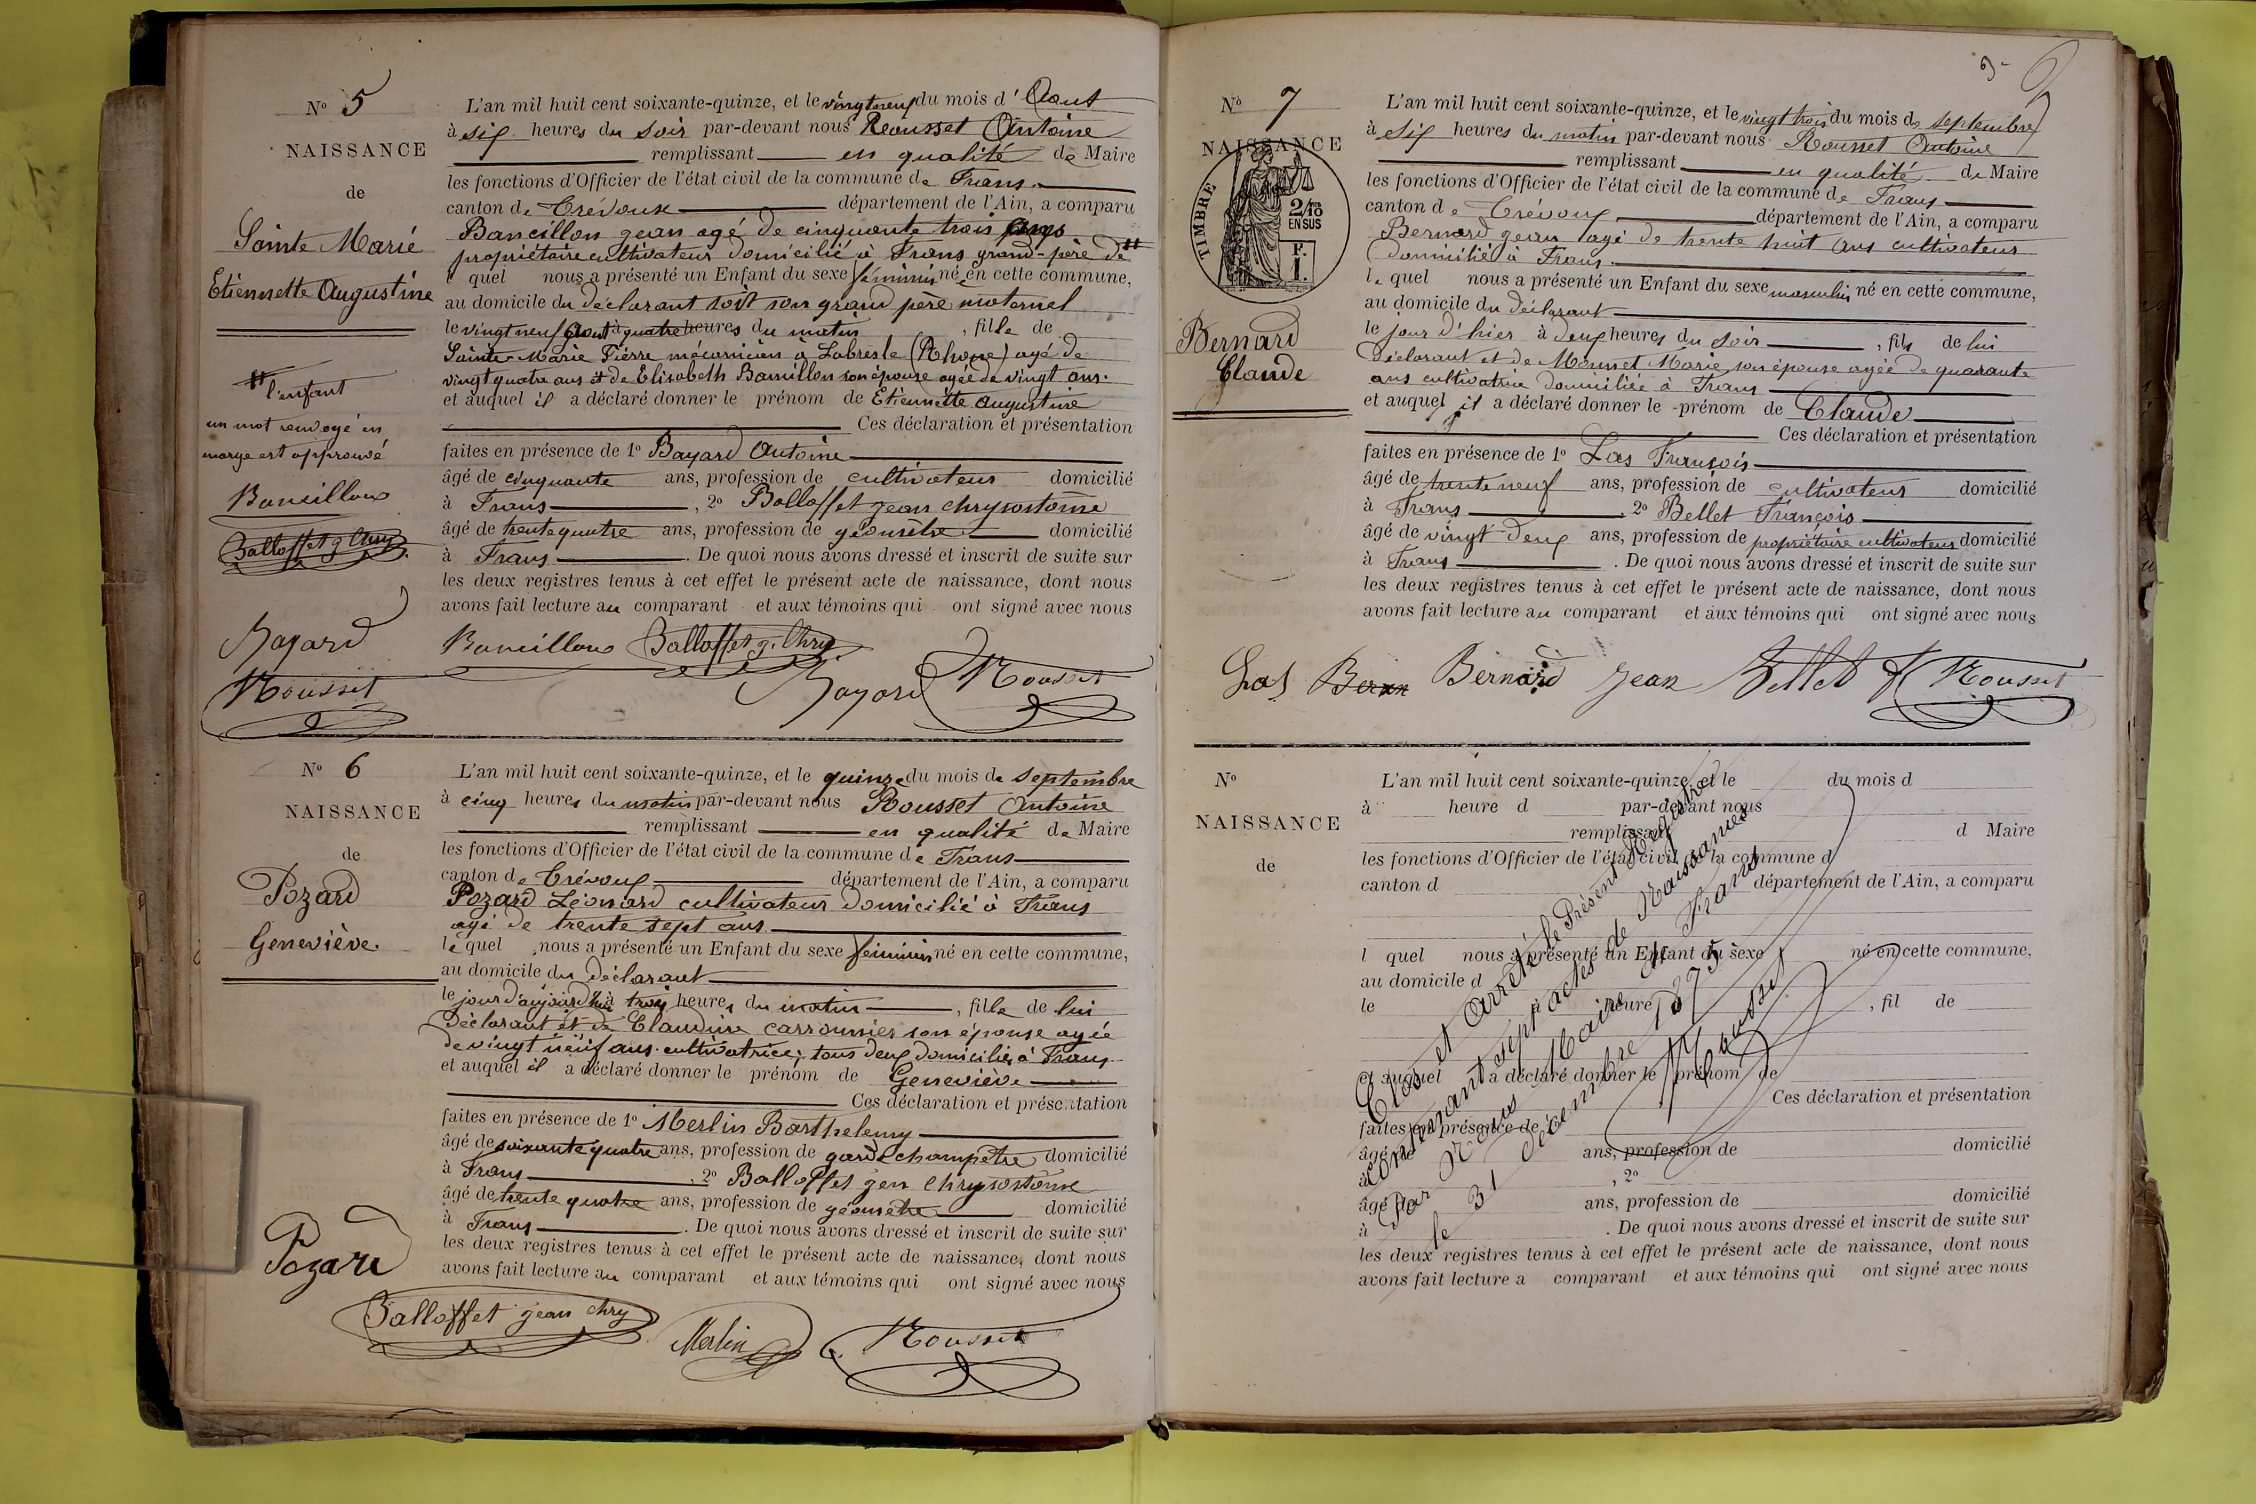 N° 5
NAISSANCE
de
Sainte Marie
Etiennette Augustine
l'enfant
un mot renvoyé en
marge est approuvé
Bancillon
Balloffet j. Chry
Bayard
Rousset
L'an mil huit cent soixante-quinze, et le vingt neuf du mois d' Aout
à six heures du soir par-devant nous Rousset Antoine
remplissant en qualité de Maire
les fonctions d'Officier de l'état civil de la commune de Frans
canton de Trévoux département de l'Ain, a comparu
Bancillon jean agé de cinquante trois ans
propriétaire cultivateur domicilié à Frans grand-père de
lequel nous a présenté un Enfant du sexe féminin né en cette commune,
au domicile du déclarant soit son grand père maternel
le vingt neuf Aout à quatre heures du matin, fille de
Sainte-Marie Pierre mécanicien à Labresle (Rhone) agé de
vingt quatre ans et de Elisabeth Bancillon son épouse agée de vingt ans.
et auquel il a déclaré donner le prénom de Etiennette Augustine
Ces déclaration et présentation
faites en présence de 1° Bayard Antoine
âgé de cinquante ans, profession de cultivateur domicilié
à Frans, 2° Balloffet jean chrysostome
âgé de trente quatre ans, profession de géomètre domicilié
à Frans. De quoi nous avons dressé et inscrit de suite sur
les deux registres tenus à cet effet le présent acte de naissance, dont nous
avons fait lecture au comparant et aux témoins qui ont signé avec nous
Bancillon Balloffet j. Chry
Bayard Rousset
N° 6
NAISSANCE
de
Pozard
Geneviève.
L'an mil huit cent soixante-quinze, et le quinze du mois de septembre
à cinq heures du matin par-devant nous Rousset Antoine
remplissant en qualité de Maire
les fonctions d'Officier de l'état civil de la commune de Frans
canton de Trévoux département de l'Ain, a comparu
Pozard Léonard cultivateur domicilié à Frans
agé de trente sept ans
lequel nous a présenté un Enfant du sexe féminin né en cette commune,
au domicile du déclarant
le jour d'aujourd'hui à trois heures du matin, fille de lui
déclarant et de Claudine carronnier son épouse agée
de vingt neuf ans cultivatrice, tous deux domiciliés à Frans
et auquel il a déclaré donner le prénom de Geneviève
Ces déclaration et présentation
faites en présence de 1° Merlin Barthelemy
âgé de soixante quatre ans, profession de garde champêtre domicilié
à Frans, 2° Balloffet jen chrysostôme
âgé de trente quatre ans, profession de géomètre domicilié
à Frans. De quoi nous avons dressé et inscrit de suite sur
les deux registres tenus à cet effet le présent acte de naissance, dont nous
avons fait lecture au comparant et aux témoins qui ont signé avec nous
Pozard
Balloffet jean chry Merlin Rousset
N° 7
NAISSANCE
TIMBRE
2/10 EN SUS
F. 1.
Bernard
Claude
L'an mil huit cent soixante-quinze, et le vingt trois du mois de septembre
à six heures du matin par-devant nous Rousset Antoine
remplissant en qualité de Maire
les fonctions d'Officier de l'état civil de la commune de Frans
canton de Trévoux département de l'Ain, a comparu
Bernard jean agé de trente huit ans cultivateur
domicilié à Frans
lequel nous a présenté un Enfant du sexe masculin né en cette commune,
au domicile du déclarant
le jour d'hier à deux heures du soir, fils de lui
déclarant et de Monnet Marie son épouse agée de quarante
ans cultivatrice domiciliée à Frans
et auquel il a déclaré donner le prénom de Claude
Ces déclaration et présentation
faites en présence de 1° Las François
âgé de trente neuf ans, profession de cultivateur domicilié
à Frans, 2° Bellet François
âgé de vingt deux ans, profession de propriétaire cultivateur domicilié
à Frans. De quoi nous avons dressé et inscrit de suite sur
les deux registres tenus à cet effet le présent acte de naissance, dont nous
avons fait lecture au comparant et aux témoins qui ont signé avec nous
Bernard jean Bellet f Rousset
N°
NAISSANCE
de
L'an mil huit cent soixante-quinze, et le du mois d
à heure d par-devant nous
remplissant d Maire
les fonctions d'Officier de l'état civil de la commune d
canton d département de l'Ain, a comparu
l quel nous a présenté un Enfant du sexe né en cette commune,
au domicile d
le à heure , fil de
et auquel a déclaré donner le prénom de
Ces déclaration et présentation
faites en présence de 1°
âgé de ans, profession de domicilié
à , 2°
âgé de ans, profession de domicilié
à . De quoi nous avons dressé et inscrit de suite sur
les deux registres tenus à cet effet le présent acte de naissance, dont nous
avons fait lecture a comparant et aux témoins qui ont signé avec nous
Clos et arrêté le Présent Registre
contenant sept actes de Naissances
Par Nous Maire de Frans
le 31 décembre 1875
Rousset